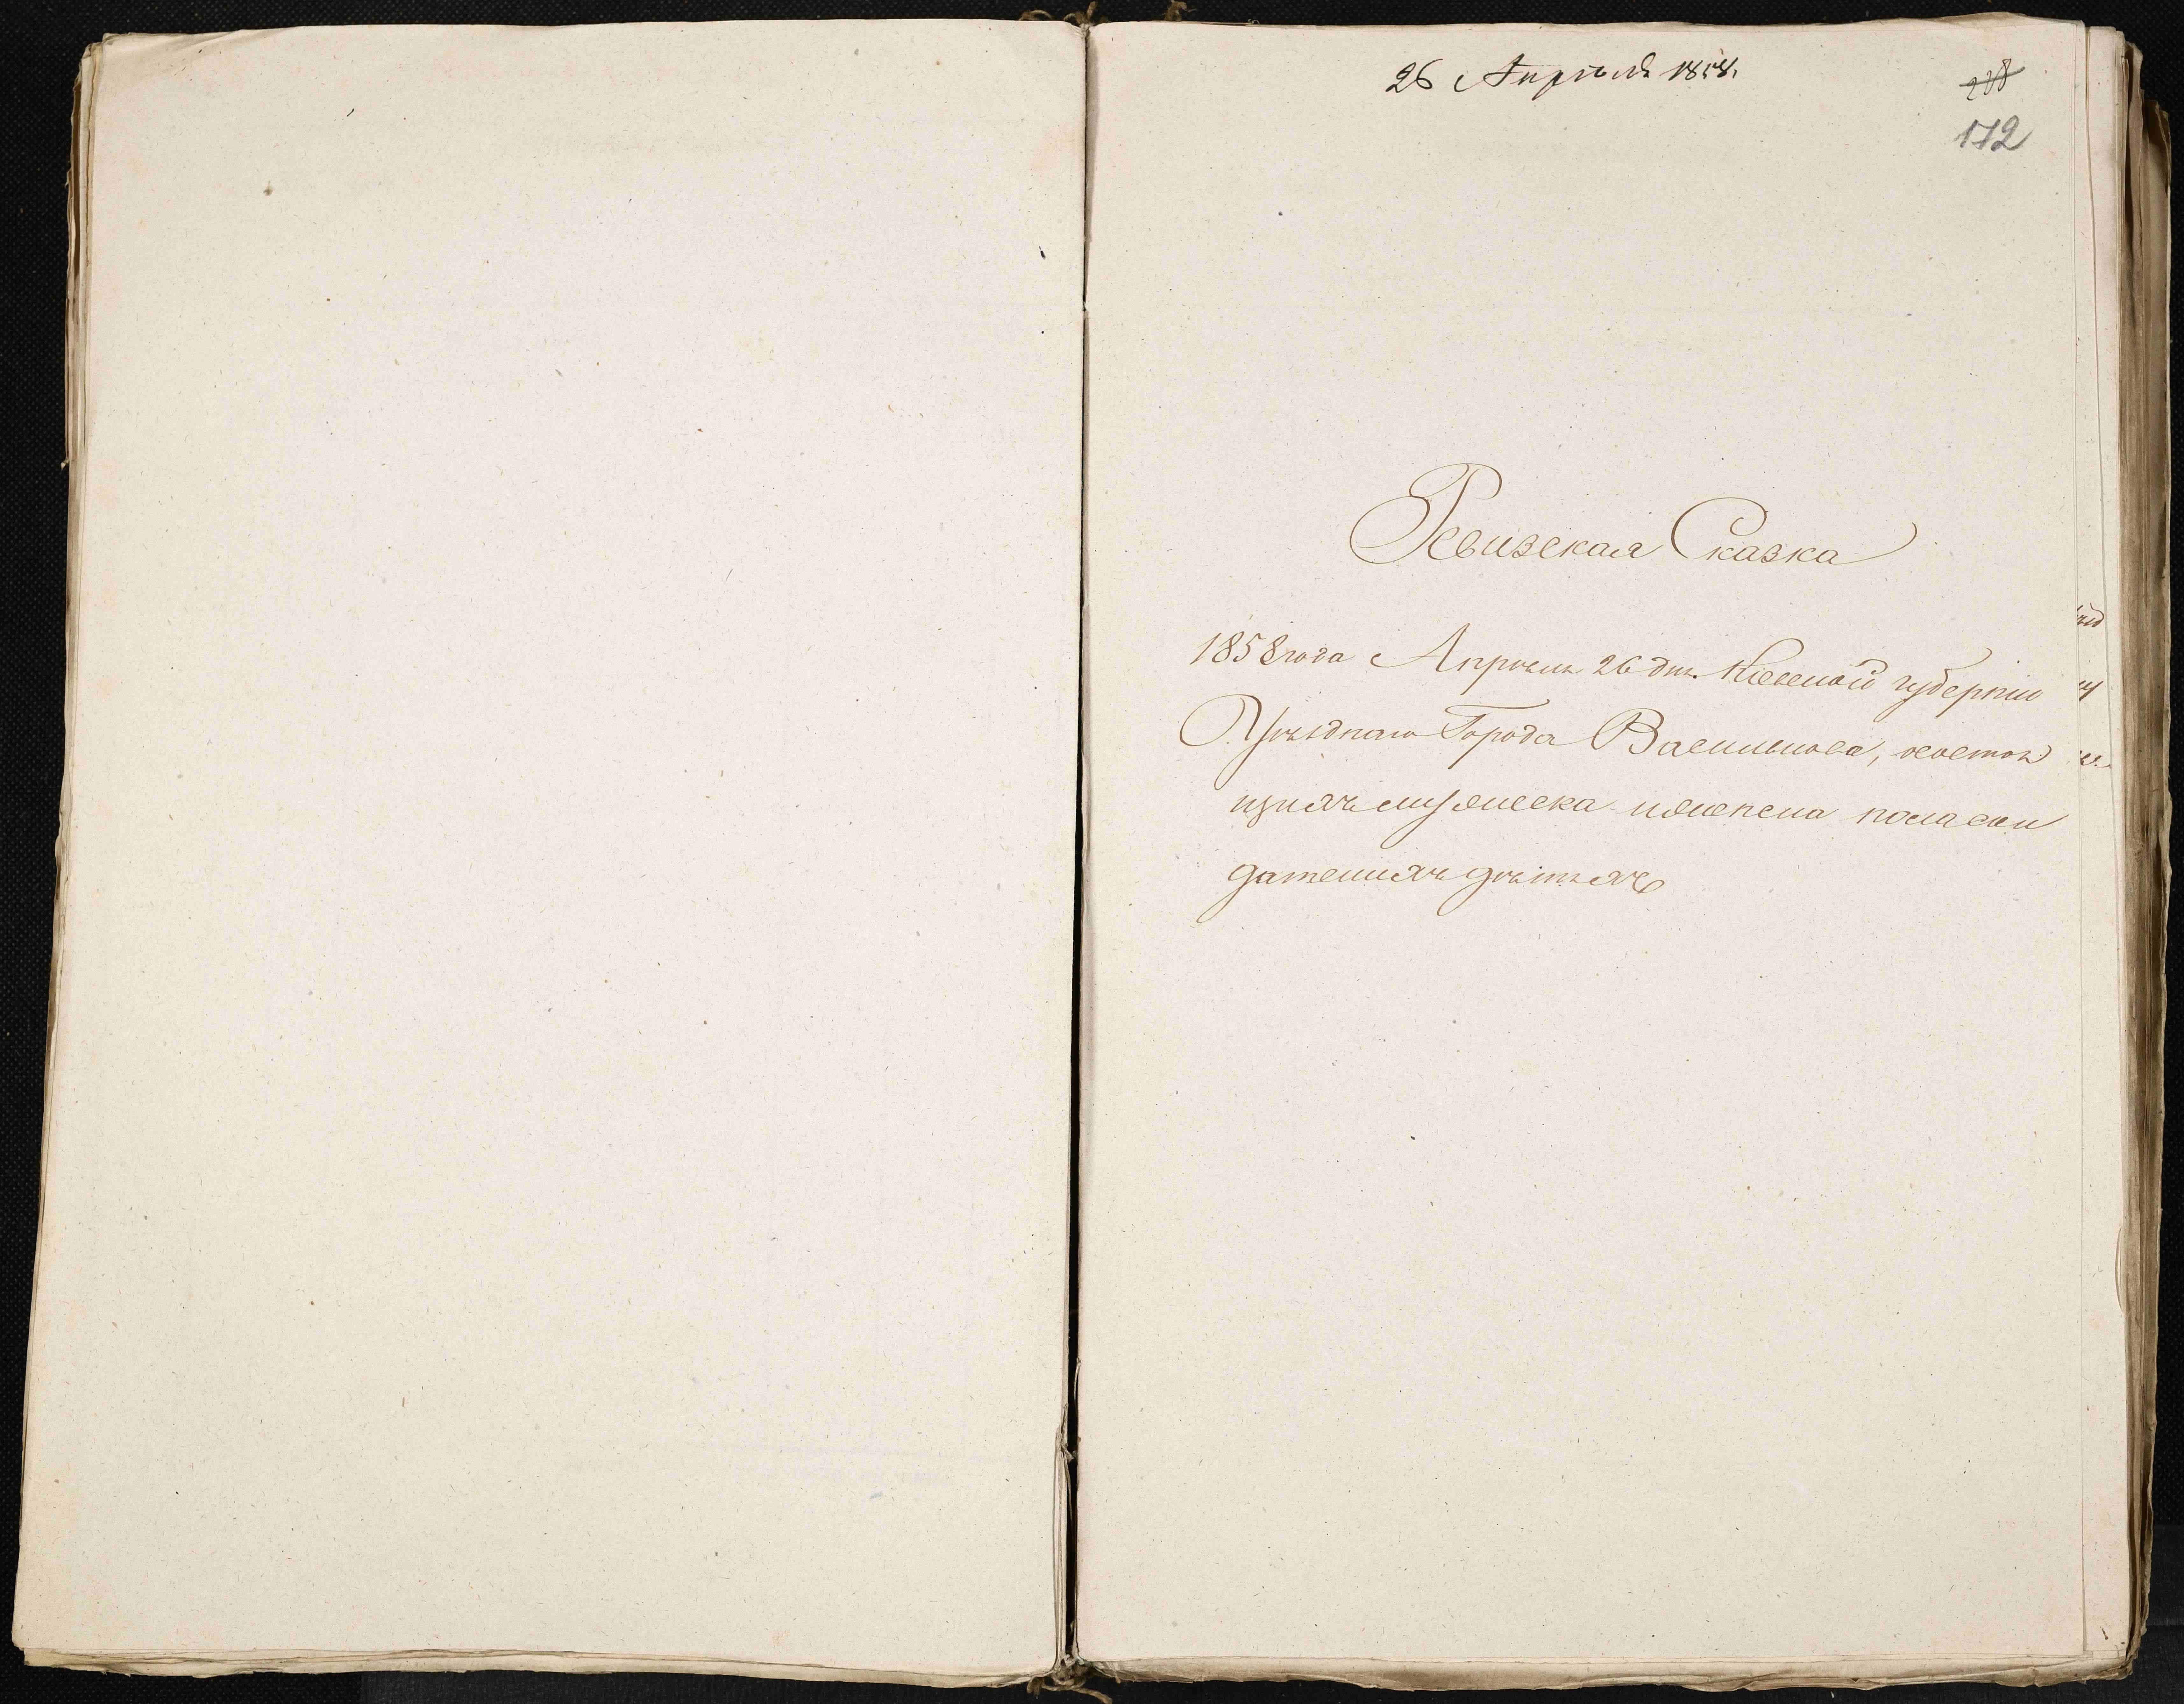 26 Апрѣля 1858.
238
172
Ревизская Сказка
1858 года Апрѣля 26 дня. Кіевской губерніи
Уѣзднаго Города Василькова, состоя
щихъ мужеска и женска пола сол
датскихъ дѣтяхъ